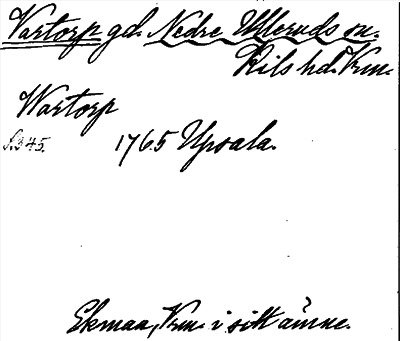 Vartorp gd. Nedre Ulleruds sn.
Kils hd. Vrm.
Wartorp
S. 345. 1765 Upsala.
Ekman, Vrm. i sitt ämne.